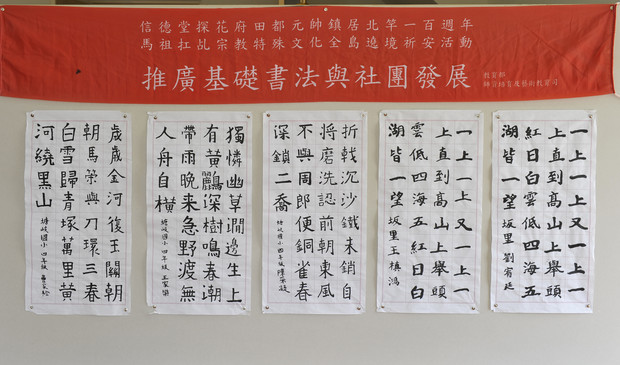 信德堂探花府田都元帥鎮居北竿一百週年
馬祖扛乩宗教特殊文化全島遶境祈安活動
推廣基礎書法與社團發展
教育部
師資培育及藝術教育司
一上一上又一上一
上直到高山上舉頭
紅日白雲低四海五
湖皆一望 坂里 劉宥廷
一上一上又一上一
上直到高山上舉頭
雲低四海五紅日白
湖皆一望 坂里王槙鴻
折戟沉沙鐵未銷自
將磨洗認前朝東風
不與周郎便銅雀春
深鎖二喬 塘岐國小四年級
獨憐幽草澗邊生上
有黃鸝深樹鳴春潮
帶雨晚來急野渡無
人舟自橫 塘岐國小四年級 王家樂
歲歲金河復玉關朝
朝馬策與刀環三春
白雪歸青塚萬里黃
河繞黑山 塘岐國小四年級